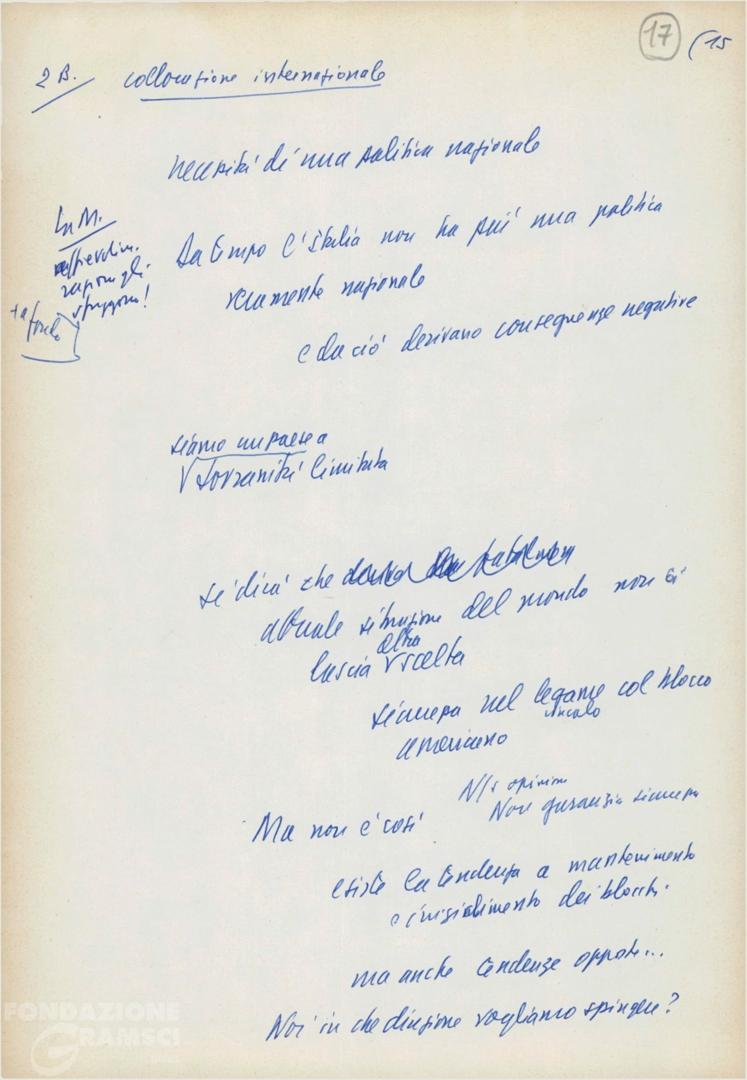 17 (15
2 B. collocazione internazionale
necessità di una politica nazionale
In M.
rapporti gli
struggono!
+ a fondo
Da tempo l'Italia non ha più una politica
veramente nazionale
e da ciò derivano conseguenze negative
siamo un paese a
sovranità limitata
Si dirà che
attuale situazione del mondo non ci
lascia altra scelta
sicurezza nel legame col blocco
vincolo
americano
N/s opinione
Ma non è così
Non garanzia sicurezza
esiste la tendenza a mantenimento
e irrigidimento dei blocchi.
ma anche tendenze opposte...
Noi in che direzione vogliamo spingere?
FONDAZIONE
GRAMSCI